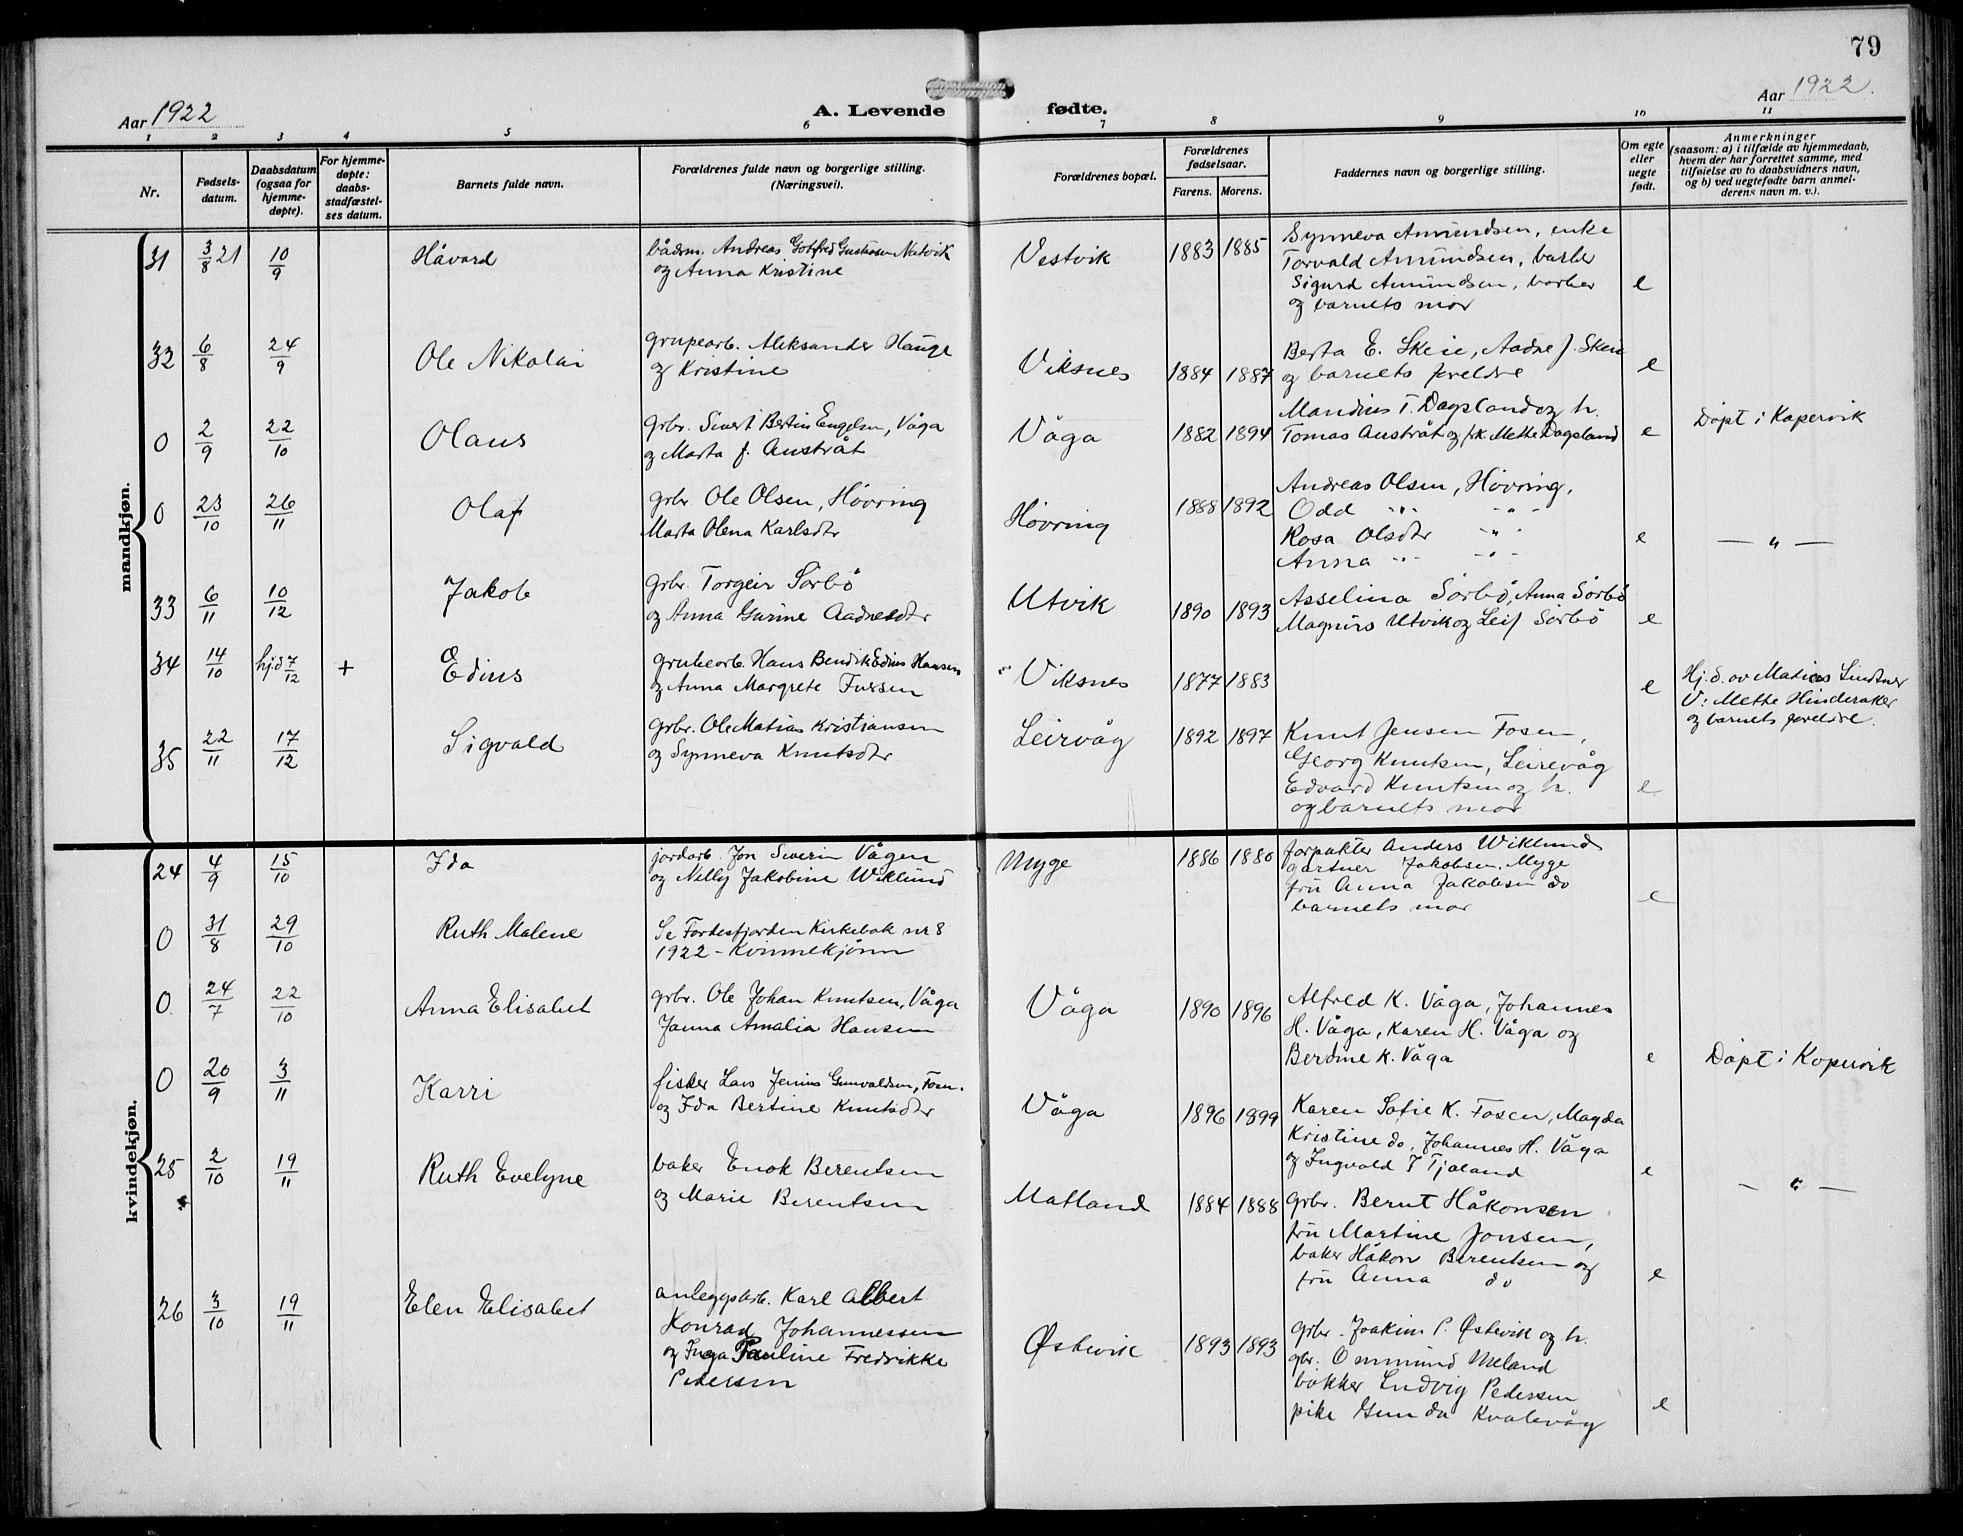 79
Aar 1922
A. Levende fødte.
Aar 1922.
1 2 3 4 5 6 7 8 9 10 11
Nr.
Fødsels-
datum.
Daabsdatum
(ogsaa for
hjemme-
døpte).
For hjemme-
døpte:
daabs-
stadfæstel-
ses datum.
Barnets fulde navn.
Forældrenes fulde navn og borgerlige stilling.
(Næringsvei).
Forældrenes bopæl.
Forældrenes
fødselsaar.
Farens. Morens.
Faddernes navn og borgerlige stilling.
Om egte
eller
uegte
født.
Anmerkninger
(saasom: a) i tilfælde av hjemmedaab,
hvem der har forrettet samme, med
tilføielse av to daabsvidners navn,
og b) ved uegtefødte barn anmel-
derens navn m. v.).
mandkjøn.
31 3/8 21 10/9 Håvard
bådsm. Andreas Gotfred Gustavsen Natvik
og Anna Kristine
Vestvik 1883 1885
Synneva Amundsen, enke
Torvald Amundsen, barber
Sigurd Amundsen, barber
og barnets mor
e
32 6/8 24/9 Ole Nikolai
grupearb. Aleksander Hauge
og Kristine
Viksnes 1884 1887
Berta E. Skeie, Aadne J. Skeie
og barnets foreldre
e
0 2/9 22/10 Olaus
grbr. Sivert Bertin Engelsn, Våga
og Marta f. Austråt
Våga 1882 1894
Mandius T. Dagsland og h.
Tomas Austråt og frk. Methe Dagsland
e
Døpt i Kopervik
0 23/10 26/11 Olaf
grbr. Ole Olsen, Høvring
Marta Olena Karlsdtr
Høvring 1888 1892
Andreas Olsen, Høvring,
Odd -"- -"-
Rosa Olsdtr -"-
Anna -"- -"-
e
— " —
33 6/11 10/12 Jakob
grbr. Torgeir Sørbø
og Anna Gurine Aadnesdtr
Utvik 1890 1893
Asselina Sørbø, Anna Sørbø
Magnus Utvik og Leif Sørbø
e
34 14/10 hjd 7/12 + Edius
grubearb. Hans Bendik Edius Hansen
og Anna Margrete Iversen
Viksnes 1877 1883
e
Hj.d. av Matias Lindtner
V: Methe Hinderaker
og barnets foreldre.
35 22/11 17/12 Sigvald
grbr. Ole Matias Kristiansen
og Synneva Knutsdtr
Leirvåg 1892 1897
Knut Jensen Fosen,
Georg Knutsen, Leirevåg
Edvard Knutsen og h.
og barnets mor
e
kvindekjøn.
24 4/9 15/10 Ida
jordarb. Jon Severin Vågen
og Nelly Jakobine Wiklund
Myge 1886 1880
forpakter Anders Wiklund
gartner Jakobsen, Myge
fru Anna Jakobsen do
barnets mor
e
0 31/8 29/10 Ruth Malene
Se Førdesfjorden Kirkebok nr 8
1922 - Kvinnekjønn
0 24/7 22/10 Anna Elisabet
grbr. Ole Johan Knutsen, Våga
Janna Amalia Hansen
Våga 1890 1896
Alfred K. Våga, Johannes
H. Våga, Karen H. Våga og
Berdine K. Våga
e
Døpt i Kopervik
0 20/9 3/11 Karri
fisker Lars Jenius Gunvaldsen, Fosn.
og Ida Bertine Knutsdtr
Våga 1896 1899
Karen Sofie K. Fosen, Magda
Kristine do, Johannes H. Våga
og Ingvald J Tjøland
e
— " —
25 2/10 19/11 Ruth Evelyne
baker Enok Berentsen
og Marie Berentsen
Matland 1884 1888
grbr. Bernt Håkonsen
fru Martine Jonsen,
baker Håkon Berentsen og
fru Anna do
e
26 3/10 19/11 Elen Elisabet
anleggsarb. Karl Albert
Konrad Johannessen
og Inga Pauline Fredrikke
Pedersen
Østevik 1893 1893
grbr. Joakim P. Østevik og h.
gbr. Ommund Meland
bøkker Ludvig Pedersen
pike Gunda Kvalevåg
e